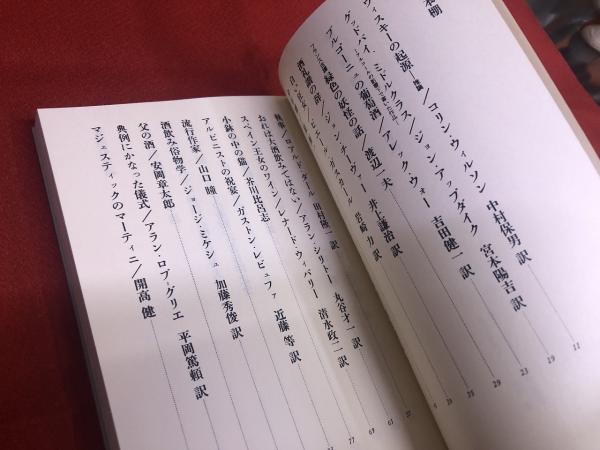 本棚
ウィスキーの起源―抜粋／コリン・ウィルソン　中村保男 訳 11
グッドバイ、ミドルクラス／ジョン・アップダイク　宮本陽吉 訳
ブルゴーニュの葡萄酒／アレック・ウォー　吉田健一 訳
緑色の妖怪の話／渡辺一夫
酒礼讃の辞／ジョン・チーヴァー　井上謙治 訳
ピエール・ガスカール　岩崎 力 訳
執事／ロアルド・ダール　田村隆一 訳
おれは大酒飲みではない／アラン・シリトー　丸谷才一 訳
スペイン王女のワイン／レナード・ウィバリー　清水政二 訳
小鉢の中の猫／芥川比呂志
アルピニストの祝宴／ガストン・レビュファ　近藤 等 訳
流行作家／山口 瞳
酒飲み俗物学／ジョージ・ミケシュ　加藤秀俊 訳
父の酒／安岡章太郎
典例にかなった儀式／アラン・ロブ＝グリエ　平岡篤頼 訳
マジェスティックのマーティニ／開高 健